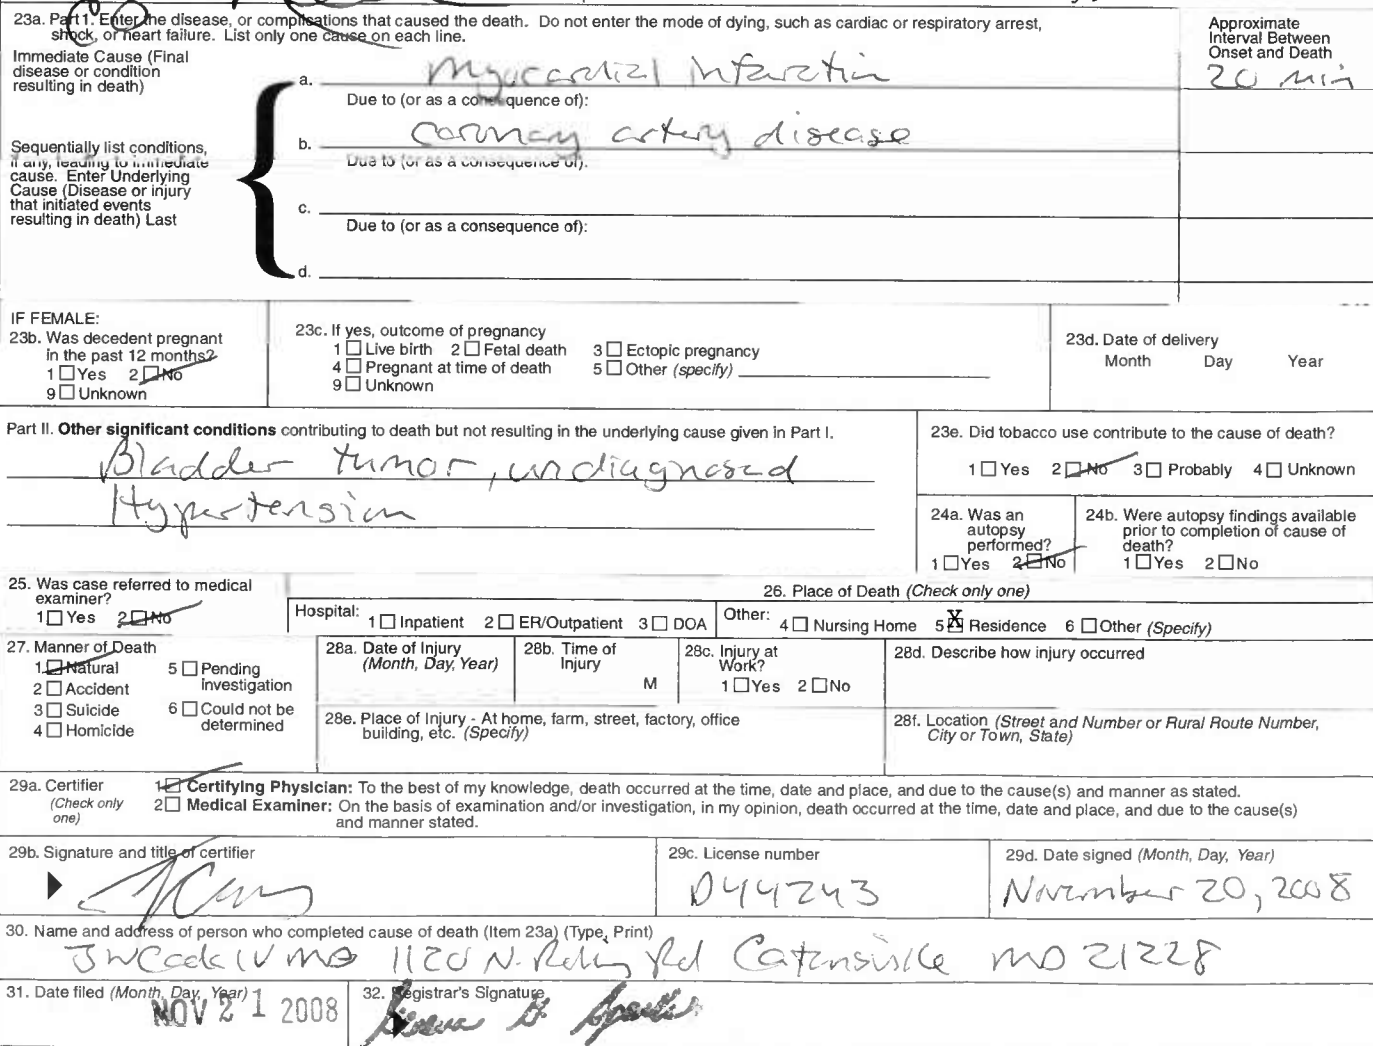 23a. Part 1. Enter the disease, or complications that caused the death. Do not enter the mode of dying, such as cardiac or respiratory arrest,
shock, or heart failure. List only one cause on each line.
Approximate
Interval Between
Onset and Death
20 min
Immediate Cause (Final
disease or condition
resulting in death)
a. Myocardial Infarction
Due to (or as a consequence of):
b. Coronary artery disease
Due to (or as a consequence of):
Sequentially list conditions,
if any, leading to immediate
cause. Enter Underlying
Cause (Disease or injury
that initiated events
resulting in death) Last
c.
Due to (or as a consequence of):
d.
IF FEMALE:
23b. Was decedent pregnant
in the past 12 months?
1 Yes 2 No
9 Unknown
23c. If yes, outcome of pregnancy
1 Live birth 2 Fetal death 3 Ectopic pregnancy
4 Pregnant at time of death 5 Other (specify)
9 Unknown
23d. Date of delivery
Month Day Year
Part II. Other significant conditions contributing to death but not resulting in the underlying cause given in Part I.
Bladder tumor, undiagnosed
Hypertension
23e. Did tobacco use contribute to the cause of death?
1 Yes 2 No 3 Probably 4 Unknown
24a. Was an
autopsy
performed?
1 Yes 2 No
24b. Were autopsy findings available
prior to completion of cause of
death?
1 Yes 2 No
25. Was case referred to medical
examiner?
1 Yes 2 No
26. Place of Death (Check only one)
Hospital: 1 Inpatient 2 ER/Outpatient 3 DOA
Other: 4 Nursing Home 5 X Residence 6 Other (Specify)
27. Manner of Death
1 Natural 5 Pending
investigation
2 Accident
3 Suicide 6 Could not be
determined
4 Homicide
28a. Date of Injury
(Month, Day, Year)
28b. Time of
Injury
M
28c. Injury at
Work?
1 Yes 2 No
28d. Describe how injury occurred
28e. Place of Injury - At home, farm, street, factory, office
building, etc. (Specify)
28f. Location (Street and Number or Rural Route Number,
City or Town, State)
29a. Certifier
(Check only
one)
1 Certifying Physician: To the best of my knowledge, death occurred at the time, date and place, and due to the cause(s) and manner as stated.
2 Medical Examiner: On the basis of examination and/or investigation, in my opinion, death occurred at the time, date and place, and due to the cause(s)
and manner stated.
29b. Signature and title of certifier
29c. License number
D44243
29d. Date signed (Month, Day, Year)
November 20, 2008
30. Name and address of person who completed cause of death (Item 23a) (Type, Print)
JW Cook IV MD 1120 N. Rolling Rd Catonsville MD 21228
31. Date filed (Month, Day, Year)
NOV 21 2008
32. Registrar's Signature